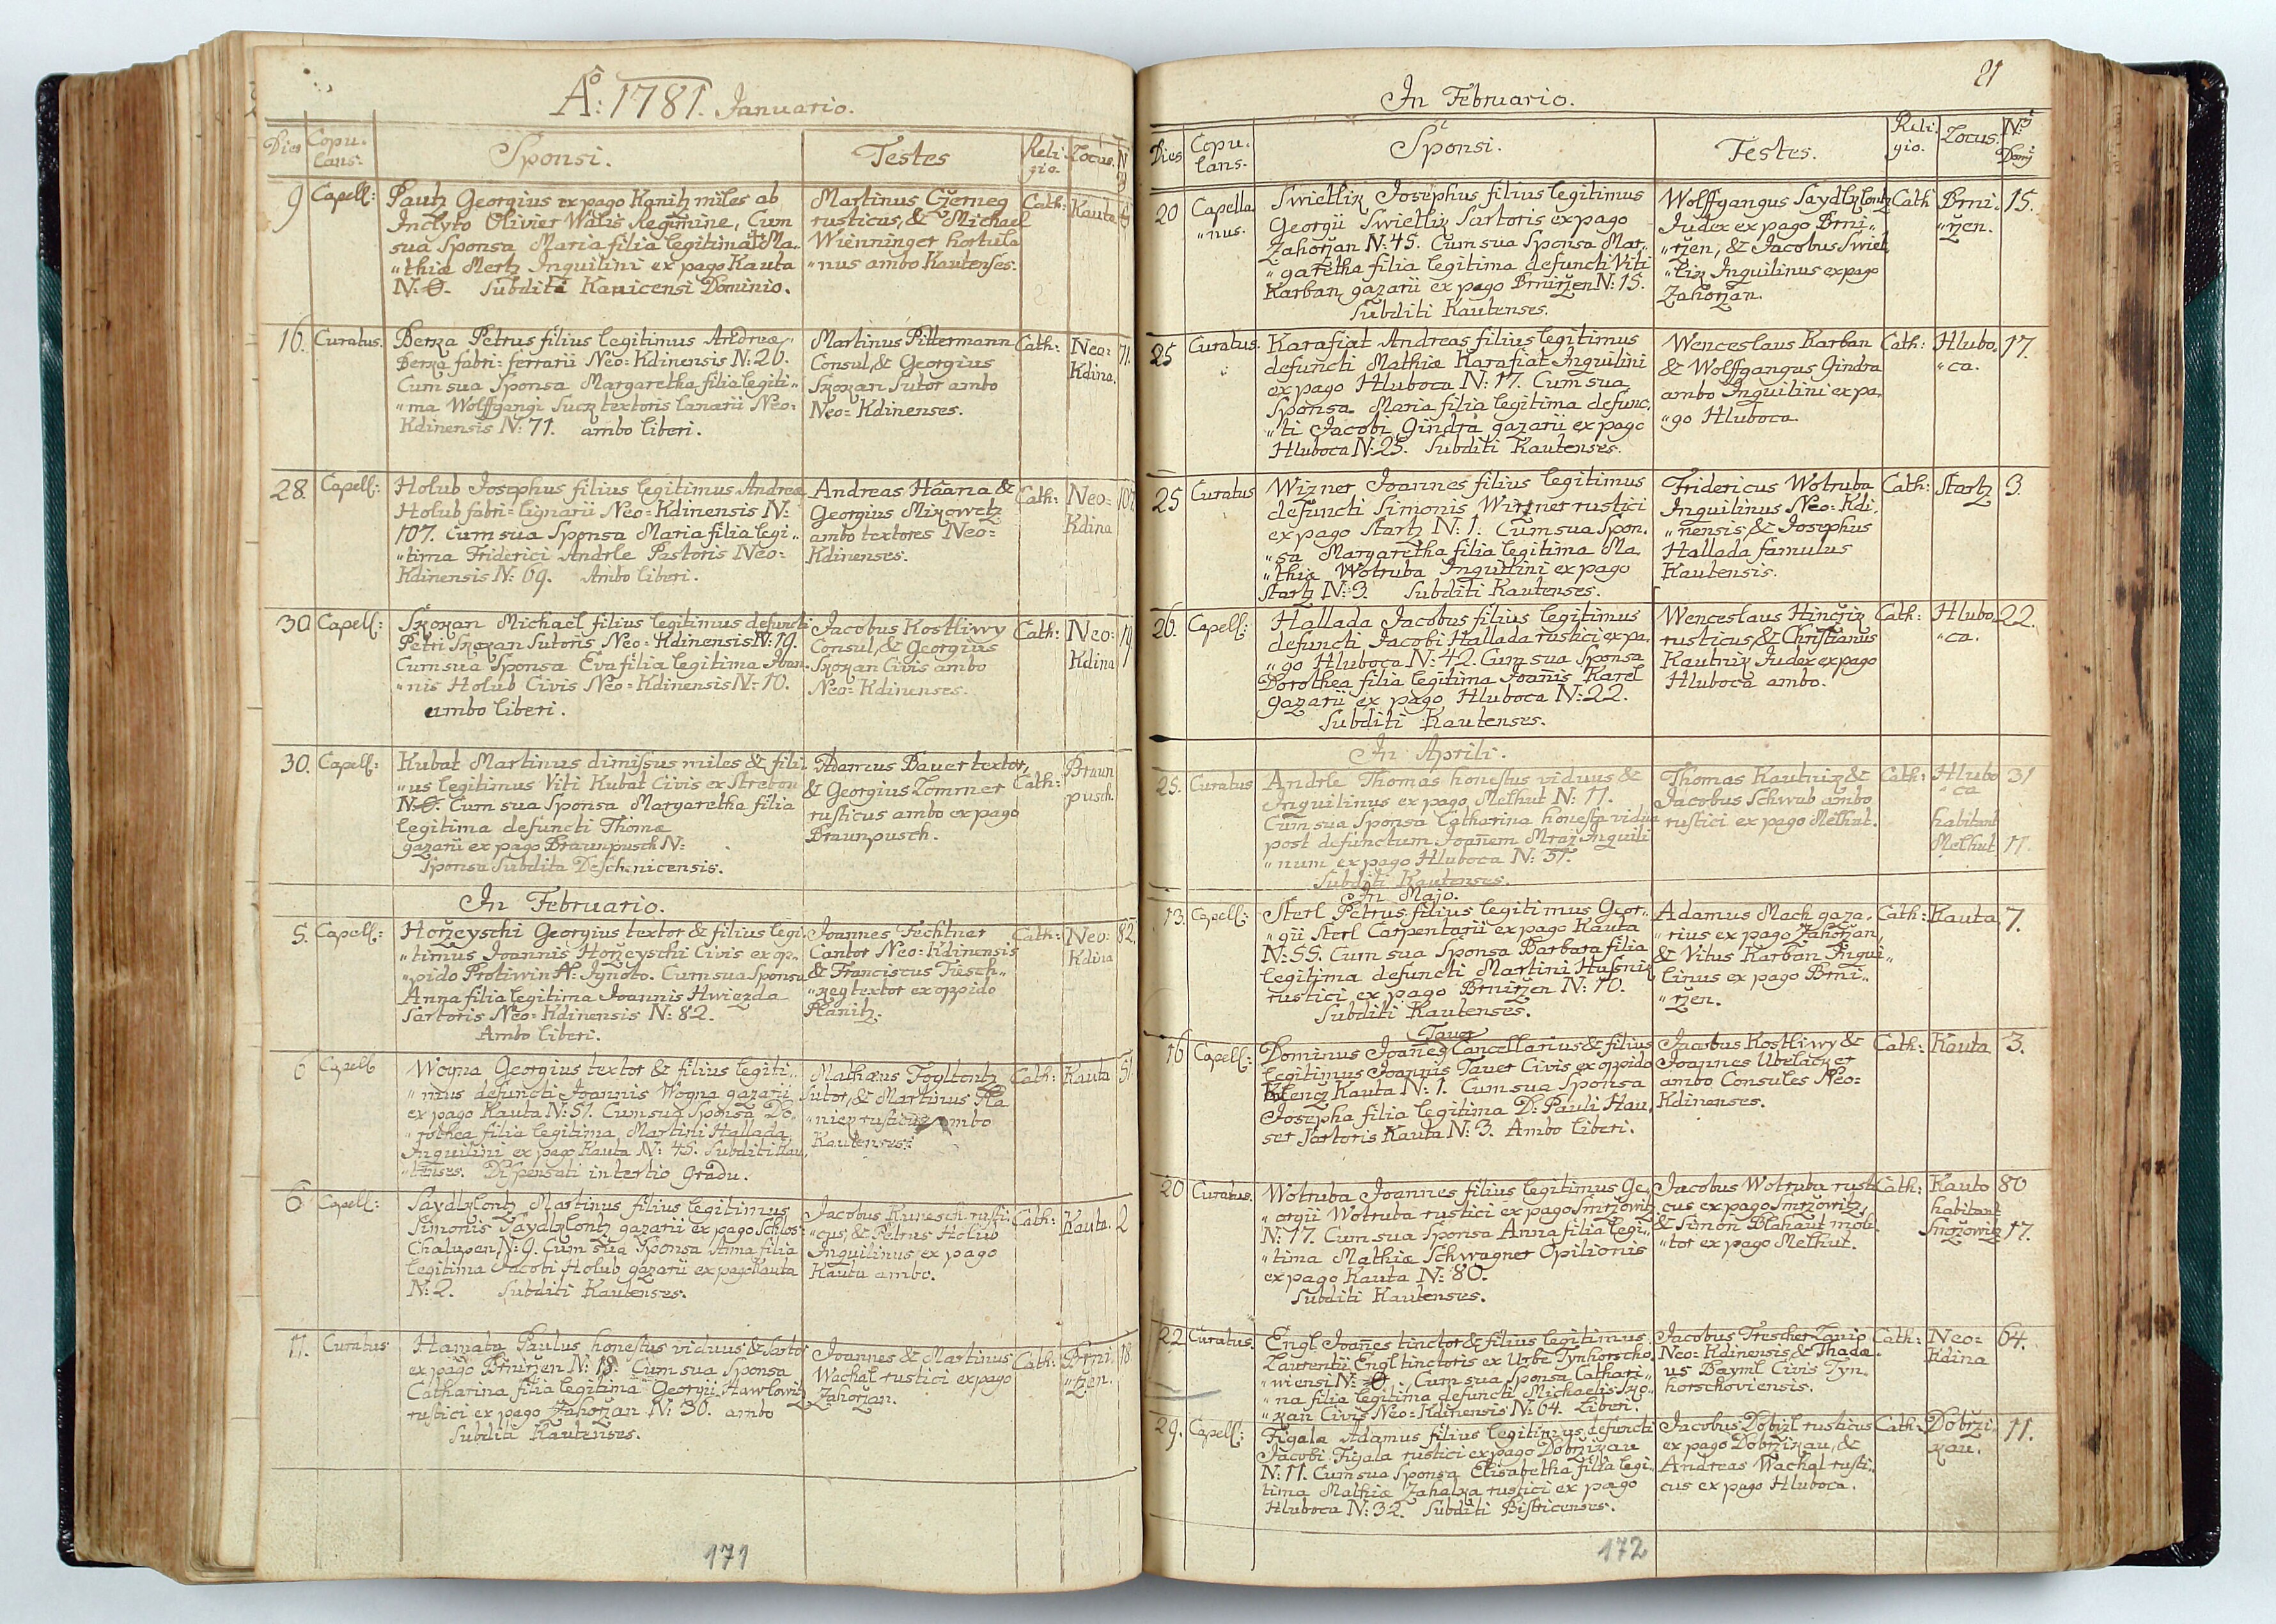 Aº: 1781. Januario.
Dies
Copu-
lans:
Sponsi.
Testes
Reli-
gio.
Locus.
9
Capell:
Pautz Georgius ex pago Kanitz miles ab
Inclyto Olivier Walis Regimine, Cum
sua Sponsa Maria filia legitima Ma„
„thiæ Mertz Inquilini ex pago Kauta
N: 0. Subditi Kanicensi Dominio.
Martinus Czerney
rusticus, & Michael
Wienninger hortula
„nus ambo Kautenses.
Cath:
Kauta
16.
Curatus.
Berka Petrus filius legitimus Andreæ
Berka fabri: ferrarii Neo=Kdinensis N: 26.
Cum sua Sponsa Margaretha filia legiti„
„ma Wolffgangi Suck textoris lanarii Neo=
Kdinensis N: 71. ambo liberi.
Martinus Pittermann
Consul, & Georgius
Skokan Sutor ambo
Neo=Kdinenses.
Cath:
Neo=
Kdina.
71.
28.
Capell:
Holub Josephus filius legitimus Andreæ
Holub fabri=lignarii Neo=Kdinensis N:
107. Cum sua Sponsa Maria filia legi„
„tima Friderici Andrle Pastoris Neo=
Kdinensis N: 69. Ambo liberi.
Andreas Haana &
Georgius Mikowetz
ambo textores Neo=
Kdinenses.
Cath:
Neo=
Kdina
107
30
Capell:
Skokan Michael filius legitimus defuncti
Petri Skokan Sutoris Neo=Kdinensis N: 19.
Cum sua Sponsa Eva filia legitima Joan„
„nis Holub Civis Neo=Kdinensis N: 10.
ambo liberi.
Jacobus Kostliwy
Consul, & Georgius
Skokan Civis ambo
Neo=Kdinenses.
Cath:
Neo=
Kdina
19
30.
Capell:
Kubat Martinus dimissus miles & fili„
„us legitimus Viti Kubat Civis ex Strebou
N: 0. Cum sua Sponsa Margaretha filia
legitima defuncti Thomæ
gazarii ex pago Braunpusch N:
Sponsa Subdita Deschenicensis.
Adamus Bauer textor,
& Georgius Lommer
rusticus ambo ex pago
Braunpusch.
Cath:
Braun
pusch.
In Februario.
5.
Capell:
Horzeyschi Georgius textor & filius legi„
„timus Joannis Horzeyschi Civis ex op„
„pido Protiwin N: Ignoto. Cum sua Sponsa
Anna filia legitima Joannis Hwiezda
Sartoris Neo=Kdinensis N: 82.
Ambo liberi.
Joannes Fechtner
Cantor Neo=Kdinensis
& Franciscus Tiesch„
„key textor ex oppido
Planitz.
Cath:
Neo=
Kdina
82.
6
Capell:
Woyna Georgius textor & filius legiti„
„mus defuncti Joannis Woyna gazarii
ex pago Kauta N: 51. Cum sua Sponsa Do„
„rothea filia legitima Martini Hallada
Inquilini ex pago Kauta N: 45. Subditi Kau„
„tenses. Dispensati in tertio Gradu.
Mathæus Fogltontz
Sutor, & Martinus Ha
„niep rusticus ambo
Kautenses.
Cath:
Kauta
51
6
Capell:
Saydlzlontz Martinus filius legitimus
Simonis Saydlzlontz gazarii ex pago Schlos=
Chalupen N: 9. Cum sua Sponsa Anna filia
legitima Jacobi Holub gazarii ex pago Kauta
N: 2. Subditi Kautenses.
Jacobus Kunesch rusti„
„cus, & Petrus Holub
Inquilinus ex pago
Kauta ambo.
Cath:
Kauta.
2
11.
Curatus
Hamata Paulus honestus viduus & Sartor
ex pago Brnirzen N: 18. Cum sua Sponsa
Catharina filia legitima Georgii Hawlowitz
rustici ex pago Zahorzan N: 30. ambo
Subditi Kautenses.
Joannes & Martinus
Wachal rustici ex pago
Zahorzan.
Cath:
Brni„
„rzen.
18
171
21
In Februario.
Dies
Copu-
lans.
Sponsi.
Testes.
Reli-
gio.
Locus.
Nº
Domi
20
Capella
„nus.
Swietlik Josephus filius legitimus
Georgii Swietlik Sartoris ex pago
Zahorzan N: 45. Cum sua Sponsa Mar„
„garetha filia legitima defuncti Viti
Karban gazarii ex pago Brnirzen N: 15.
Subditi Kautenses.
Wolffgangus Saydlzlontz
Judex ex pago Brni„
„rzen, & Jacobus Swiet
„lik Inquilinus ex pago
Zahorzan.
Cath
Brni„
„rzen.
15.
25
Curatus.
Karafiat Andreas filius legitimus
defuncti Mathiæ Karafiat Inquilini
ex pago Hluboca N: 17. Cum sua
Sponsa Maria filia legitima defunc„
„ti Jacobi Gindra gazarii ex pago
Hluboca N: 25. Subditi Kautenses.
Wenceslaus Karban
& Wolffgangus Gindra
ambo Inquilini ex pa„
„go Hluboca.
Cath:
Hlubo„
„ca.
17.
25
Curatus
Wizner Joannes filius legitimus
defuncti Simonis Wizner rustici
ex pago Startz N: 1. Cum sua Spon„
„sa Margaretha filia legitima Ma„
„thiæ Wotruba Inquilini ex pago
Startz N: 3. Subditi Kautenses.
Fridericus Wotruba
Inquilinus Neo=Kdi„
„nensis & Josephus
Hallada famulus
Kautensis.
Cath:
Startz
3.
26.
Capell:
Hallada Jacobus filius legitimus
defuncti Jacobi Hallada rustici ex pa„
„go Hluboca N: 42. Cum sua Sponsa
Dorothea filia legitima Joannis Karel
gazarii ex pago Hluboca N: 22.
Subditi Kautenses.
Wenceslaus Hinczik
rusticus, & Christianus
Kautnik Judex ex pago
Hluboca ambo.
Cath:
Hlubo„
„ca.
22.
In Aprili.
25.
Curatus
Andrle Thomas honestus viduus &
Inquilinus ex pago Melhut N: 11.
Cum sua Sponsa Catharina honesta vidua
post defunctum Joannem Mraz Inquili
„num ex pago Hluboca N: 31.
Subditi Kautenses.
Thomas Kautnik &
Jacobus Schwub ambo
rustici ex pago Melhut.
Cath:
Hlubo
„ca
habitant
Melhut
31
11.
In Majo.
13.
Capell:
Sterl Petrus filius legitimus Geor„
„gii Sterl Carpentarii ex pago Kauta
N: 55. Cum sua Sponsa Barbara filia
legitima defuncti Martini Hussnik
rustici ex pago Brnirzen N: 10.
Subditi Kautenses.
Adamus Mach gaza„
„rius ex pago Zahorzan,
& Vitus Karban Inqui„
linus ex pago Brni„
„rzen.
Cath:
Kauta
7.
16
Capell:
Tauer
Dominus Joannes Cancellarius & filius
legitimus Joannis Tauer Civis ex oppido
Klencz Kauta N: 1. Cum sua Sponsa
Josepha filia legitima D: Pauli Hau„
ser Sartoris Kauta N: 3. Ambo liberi.
Jacobus Kostliwy &
Joannes Ubelacker
ambo Consules Neo=
Kdinenses.
Cath:
Kauta
3.
20
Curatus.
Wotruba Joannes filius legitimus Ge„
„orgii Wotruba rustici ex pago Smrzowitz
N: 17. Cum sua Sponsa Anna filia legi„
„tima Mathiæ Schwagner Opilionis
ex pago Kauta N: 80.
Subditi Kautenses.
Jacobus Wotruba rusti
cus ex pago Smrzowitz,
& Simon Blahaut moli
„tor ex pago Melhut.
Cath:
Kauto
habitant
Smrzowitz
80
17.
22
Curatus.
Engl Joannes tinctor & filius legitimus
Laurentii Engl tinctoris ex Urbe Tynhorscho„
„wiensi N: 0. Cum sua Sponsa Cathari„
„na filia legitima defuncti Michaelis Sko„
„kan Civis Neo=Kdinensis N: 64. Liberi.
Jacobus Trescher Lanio
Neo=Kdinensis & Thadæ
us Bayml Civis Tyn„
horschoviensis.
Cath:
Neo=
Kdina
64.
29.
Capell:
Figala Adamus filius legitimus defuncti
Jacobi Figala rustici ex pago Dobrzikau
N: 11. Cum sua Sponsa Elisabetha filia legi„
tima Mathiæ Zahalka rustici ex pago
Hluboca N: 32. Subditi Bistricenses.
Jacobus Dobizl rusticus
ex pago Dobrzikau, &
Andreas Wachal rusti„
cus ex pago Hluboca.
Cath:
Dobrzi„
kau.
11.
172